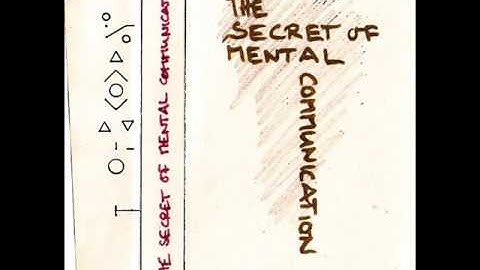 THE
SECRET OF
MENTAL
COMMUNICATION
THE SECRET OF MENTAL COMMUNICAT